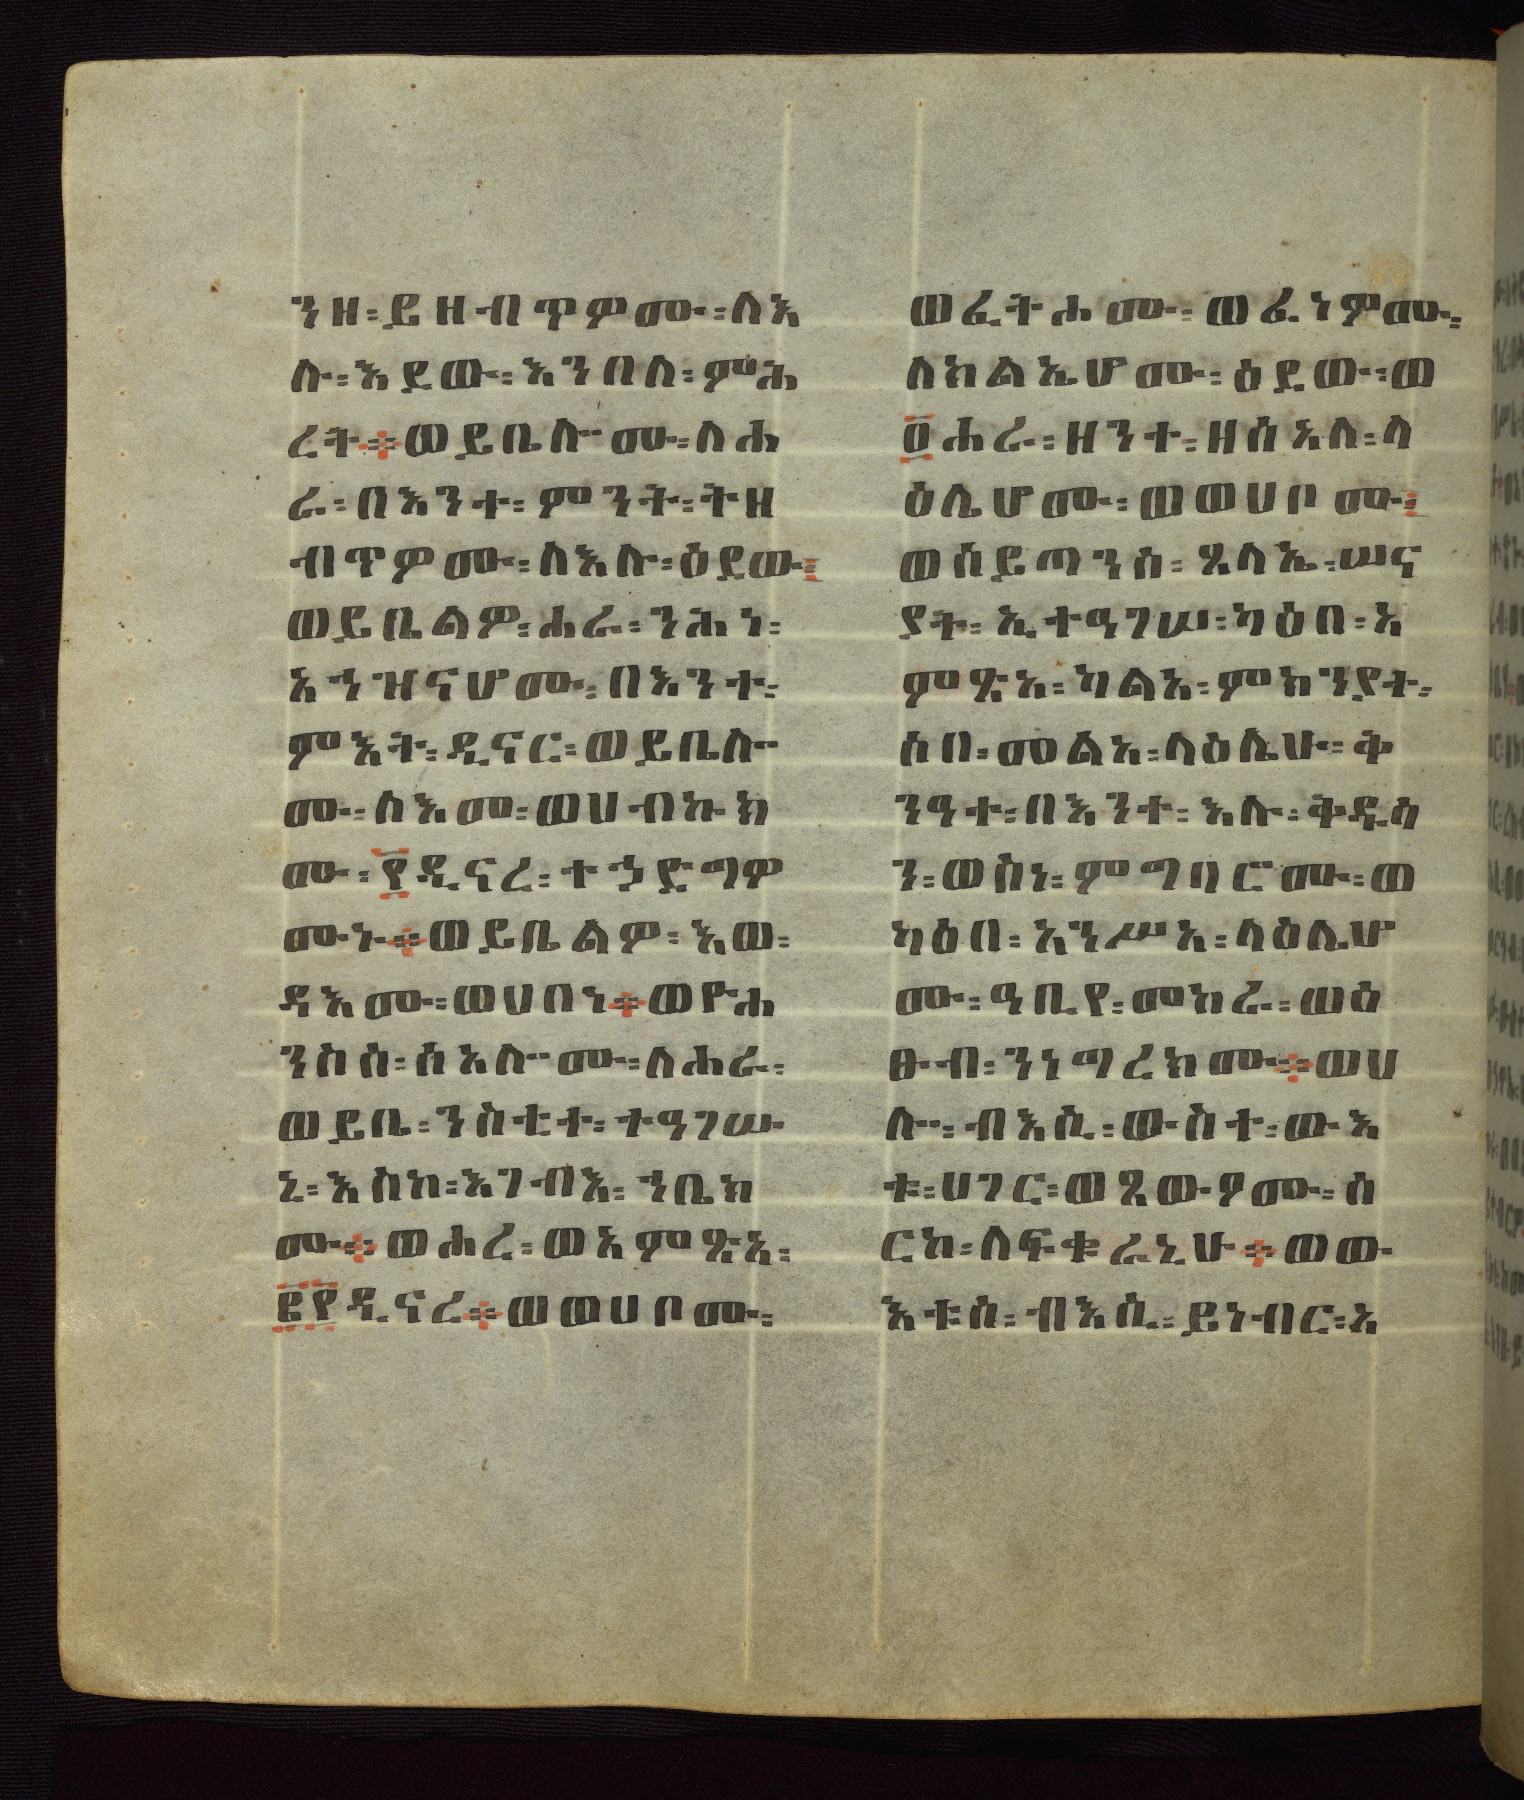 ንዘ፡ይዘብጥዎሙ፡ለእ
ሉ፡እደው፡እንበለ፡ምሕ
ረት።ወይቤሎሙ፡ለሐ
ራ፡በእንተ፡ምንት፡ትዘ
ብጥዎሙ፡ለእሉ፡ዕደው፡
ወይቤልዎ፡ሐራ፡ንሕነ፡
አኀዝናሆሙ፡በእንተ፡
ምእት፡ዲናር፡ወይቤሎ
ሙ፡ለእመ፡ወሀብኩክ
ሙ፡፶ዲናረ፡ተኃድግዎ
ሙኑ።ወይቤልዎ፡እወ፡
ዳእሙ፡ወሀበነ።ወዮሐ
ንስሰ፡ሰአሎሙ፡ለሐራ፡
ወይቤ፡ንስቲተ፡ተዓገሡ
ኒ፡እስከ፡እገብእ፡ኀቤክ
ሙ።ወሐረ፡ወአምጽአ፡
፪፶ዲናረ።ወወሀቦሙ፡
ወፈትሐሙ፡ወፈነዎሙ፡
ለክልኤሆሙ፡ዕደው፡ወ
፬ሐራ፡ዘንተ፡ዘሰአለ፡ላ
ዕሌሆሙ፡ወወሀቦሙ፡
ወሰይጣንሰ፡ጸላኤ፡ሠና
ያት፡ኢተዓገሠ፡ካዕበ፡አ
ምጽአ፡ካልአ፡ምክንያተ፡
ሰበ፡መልአ፡ላዕሌሁ፡ቅ
ንዓተ፡በእንተ፡እሉ፡ቅዱሳ
ን፡ወሰነ፡ምግባሮሙ፡ወ
ካዕበ፡አንሥአ፡ላዕሌሆ
ሙ፡ዓቢየ፡መከራ፡ወዕ
ፁብ፡ንነግረክሙ።ወሀ
ሎ፡ብእሲ፡ውስተ፡ውእ
ቱ፡ሀገር፡ወጼውዖሙ፡ሰ
ርከ፡ለፍቁራኒሁ።ወው
እቱሰ፡ብእሲ፡ይነብር፡አ